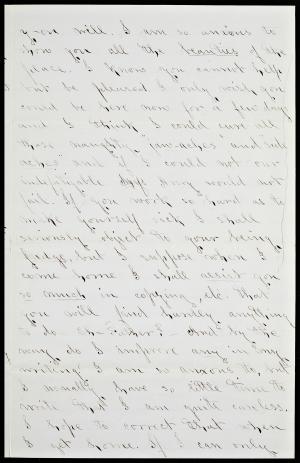 you will. I am so anxious to
show you all the beauties of the
place. I know you cannot help
but be pleased I only wish you
could be here now for a few days
and I think I could cure all
those naughty "jaw-aches and side
aches" and if I could not our
indefinable would not
fail. If you work so hard as to
make yourself sick I shall
seriously object to your being
Judge, but I suppose when I
come home I shall assist you
so much in copying, etc. that
you will find hardly anything
to do - eh - Father? - And by the
way do I improve any in my
writing? I am so anxious to, but
I usually have so little time to
write that I am quite careless.
I hope to correct that when
I get home. If I can only